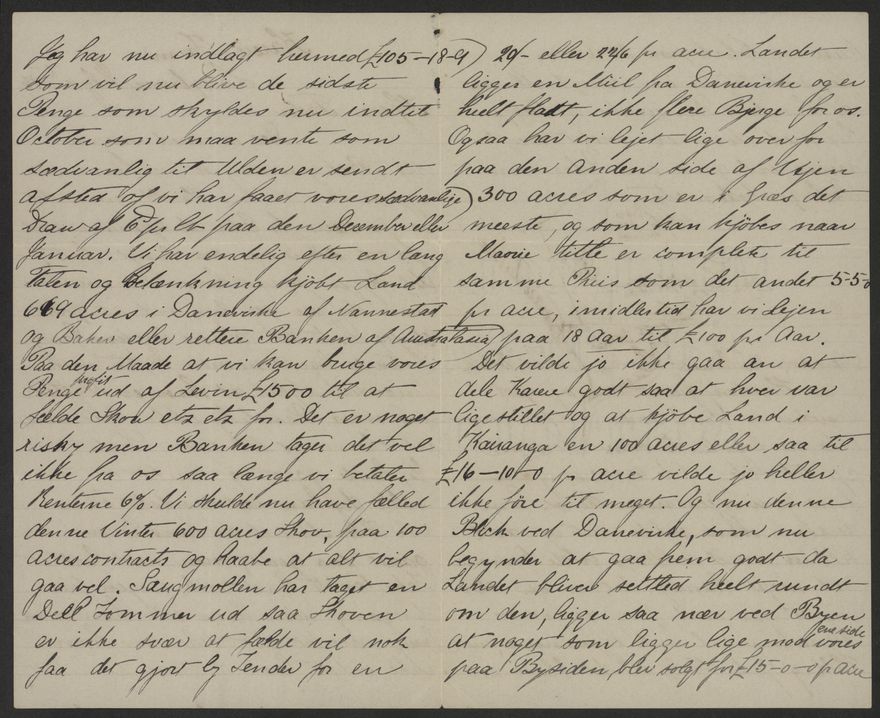 Jeg har nu indlagt hermed £105-18-9)
som vil nu blive de sidste
Penge som skyldes nu indtil
October som maa vente som
sædvanlig til Ulden er sendt
afsted og vi har faaet vores sædvanlige)
Draw af £ paa den December eller
Januar. Vi har endelig efter en lang
Talen og Betænkning kjöbt Land
669 acres i Danevirke af Nannestad
og Baker eller rettere Banken af Australasia)
Paa den Maade at vi kan bruge vores
Penge profit ud af Levin £1500 til at
fælde Skov etz etz for. Det er noget
risky men Banken tager det vel
ikke fra os saa længe vi betaler
Renterne 6%. Vi skulde nu have fælled
denne Vinter 600 acres Skov, paa 100
acres contracts og haabe at alt vil
gaa vel. Saugmollen har taget en
Dell Tommer ud saa Skoven
er ikke svær at fælde vil nok
faa det gjort by Tender for en
20/- eller 22/6 pr acre. Landet
ligger en Miil fra Danevirke og er
heelt fladt, ikke flere Bjerge for os.
Ogsaa har vi lejet lige over for
paa den anden side af Vejen
300 acres som er i Græs det
meeste, og som kan kjöbes naar
Maorie title er complete til
samme Priis som det andet 5-5-0
pr acre, imidlertid har vi Lejen
paa 18 Aar til £100 pr Aar.
Det vilde jo ikke gaa an at
dele Karere godt saa at hver var
lige stillet og at kjöbe Land i
Kairanga en 100 acres eller saa til
£16-10-0 pr acre vilde jo heller
ikke före til meget. Og nu denne
Block ved Danevirke, som nu
begynder at gaa frem godt da
Landet bliver settled heelt rundt
om den, ligger saa nær ved Byen
at noget som ligger lige mod vores
ene side
paa Bysiden, blev solgt for £15-0-0 pr acre